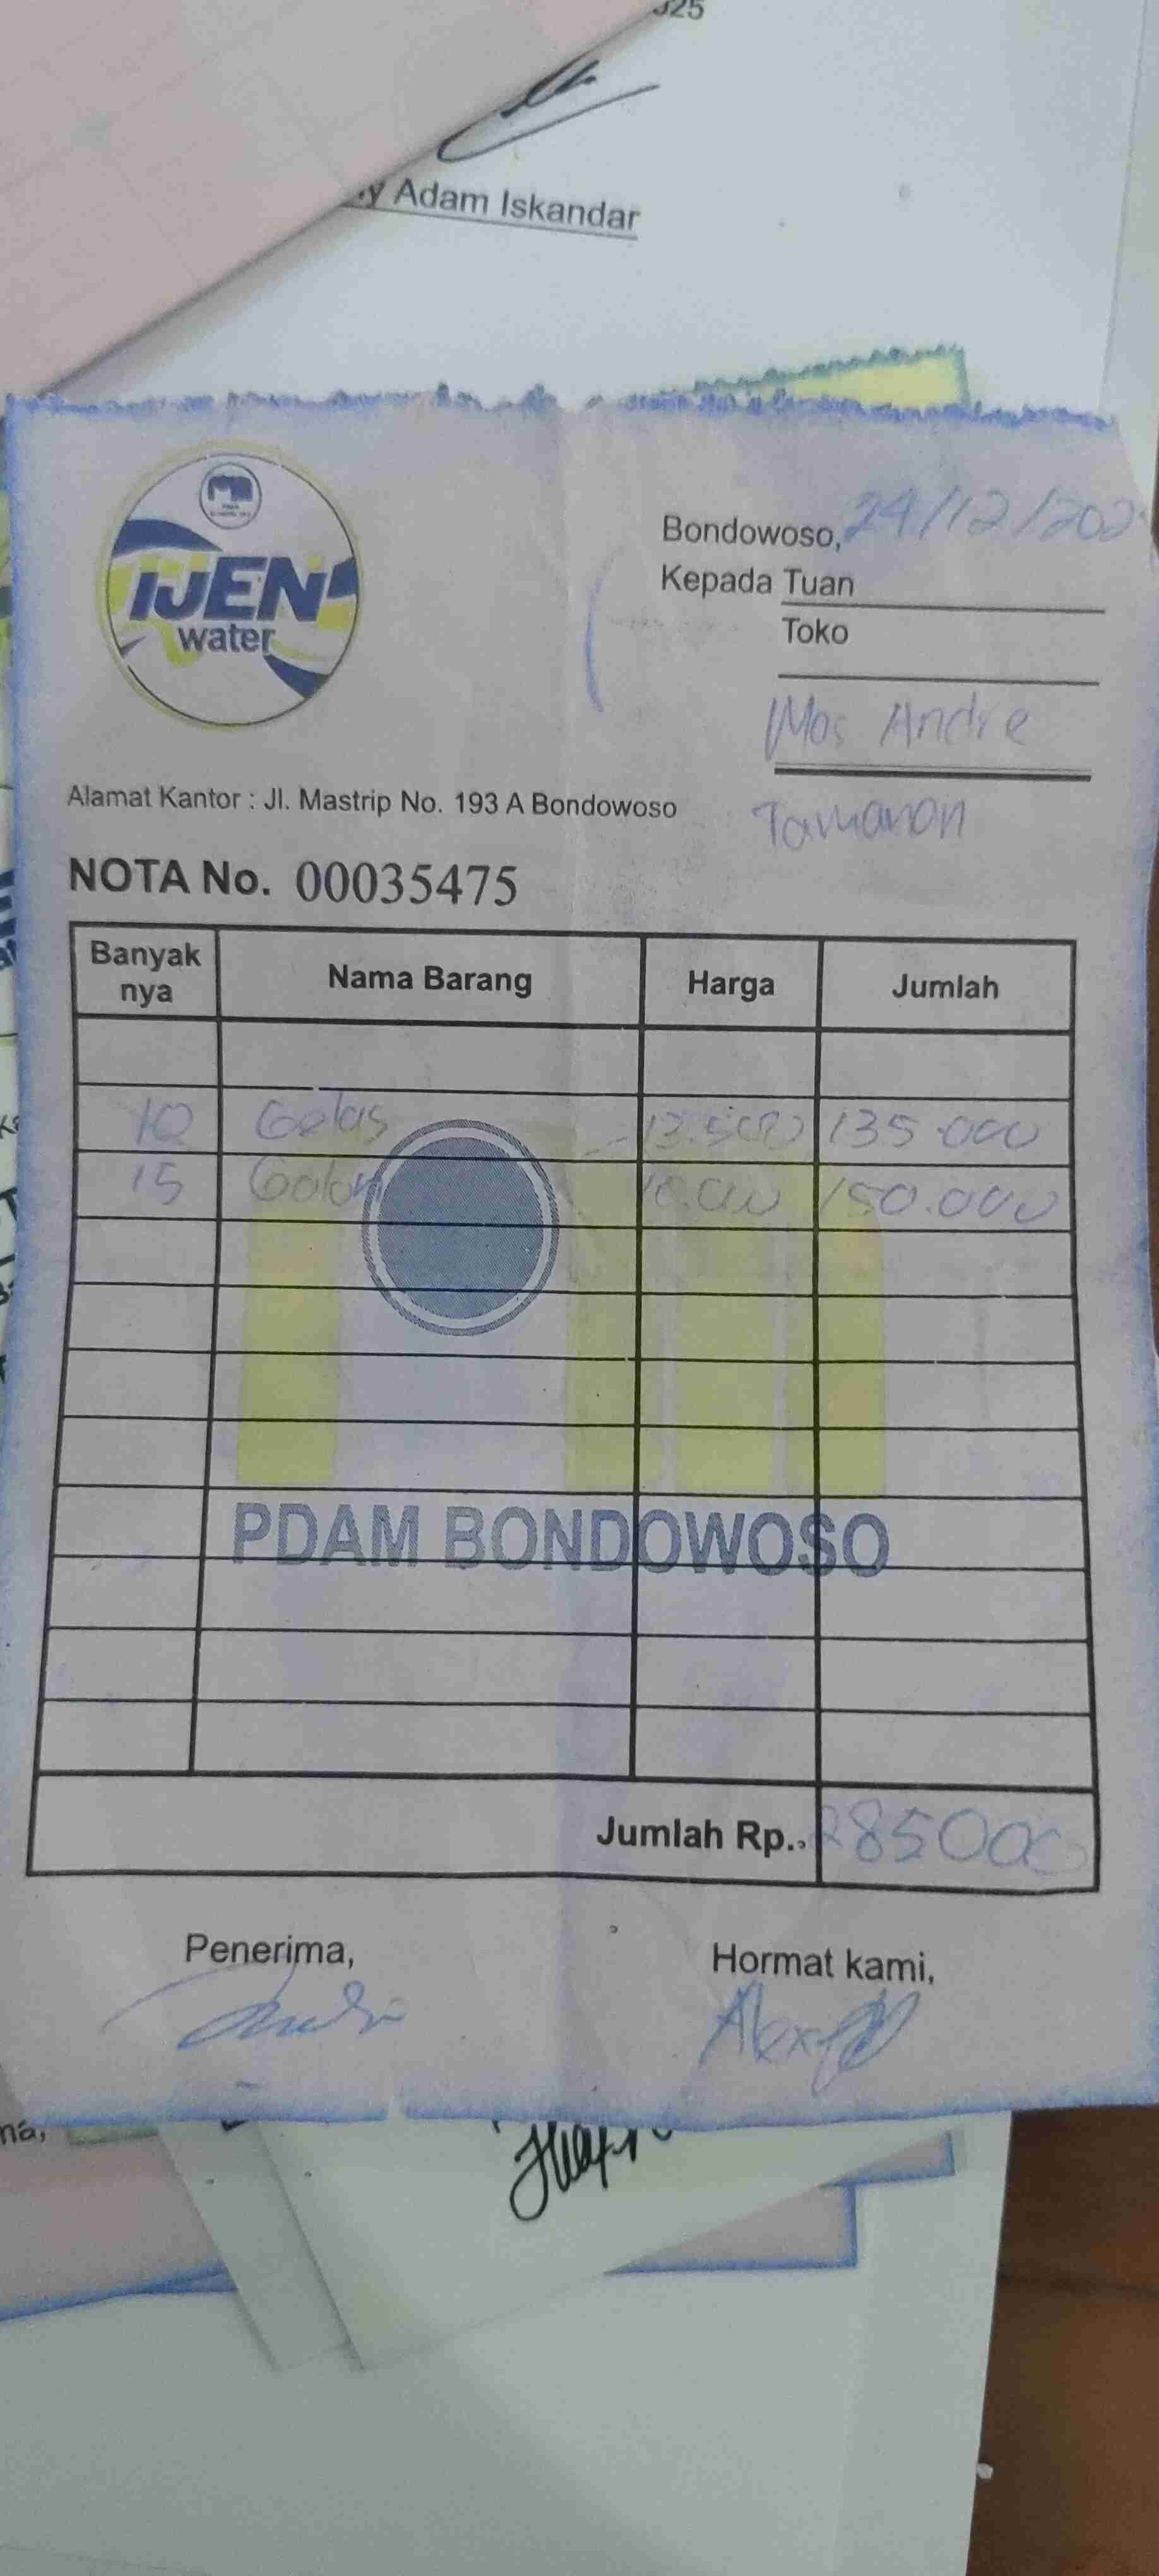 Adam Iskandar
IJEN
water
Bondowoso, 24/12/202
Kepada Tuan
Toko
Mas Andre
Tamanan
Alamat Kantor : Jl. Mastrip No. 193 A Bondowoso
NOTA No. 00035475
Banyak nya Nama Barang Harga Jumlah
10 Gelas 13.500 135.000
15 Galon 10.000 150.000
PDAM BONDOWOSO
Jumlah Rp., 285000
Penerima, Hormat kami,